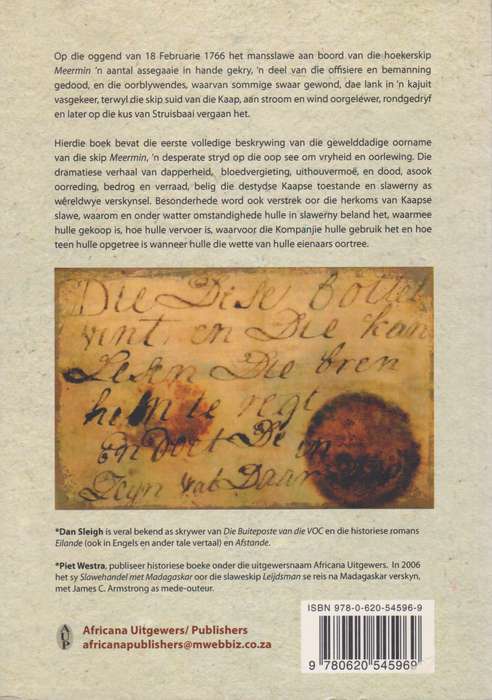 Op die oggend van 18 Februarie 1766 het mansslawe aan boord van die hoekerskip
Meermin 'n aantal assegaaie in hande gekry, 'n deel van die offisiere en bemanning
gedood, en die oorblywendes, waarvan sommige swaar gewond, dae lank in 'n kajuit
vasgekeer, terwyl die skip suid van die Kaap, aan stroom en wind oorgeléwer, rondgedryf
en later op die kus van Struisbaai vergaan het.
Hierdie boek bevat die eerste volledige beskrywing van die gewelddadige oorname
van die skip Meermin, 'n desperate stryd op die oop see om vryheid en oorlewing. Die
dramatiese verhaal van dapperheid, bloedvergieting, uithouvermoë, en dood, asook
oorreding, bedrog en verraad, belig die destydse Kaapse toestande en slawerny as
wêreldwye verskynsel. Besonderhede word ook verstrek oor die herkoms van Kaapse
slawe, waarom en onder watter omstandighede hulle in slawerny beland het, waarmee
hulle gekoop is, hoe hulle vervoer is, waarvoor die Kompanjie hulle gebruik het en hoe
teen hulle opgetree is wanneer hulle die wette van hulle eienaars oortree.
Die Dese bottel
vint en Die kan
Lesen Die bren
hem te regt
En doet De in
Zeyn vat Daar
*Dan Sleigh is veral bekend as skrywer van Die Buiteposte van die VOC en die historiese romans
Eilande (ook in Engels en ander tale vertaal) en Afstande.
*Piet Westra, publiseer historiese boeke onder die uitgewersnaam Africana Uitgewers. In 2006
het sy Slawehandel met Madagaskar oor die slaweskip Leijdsman se reis na Madagaskar verskyn,
met James C. Armstrong as mede-outeur.
ISBN 978-0-620-54596-9
9 780620 545969
AUP
Africana Uitgewers/ Publishers
africanapublishers@mwebbiz.co.za